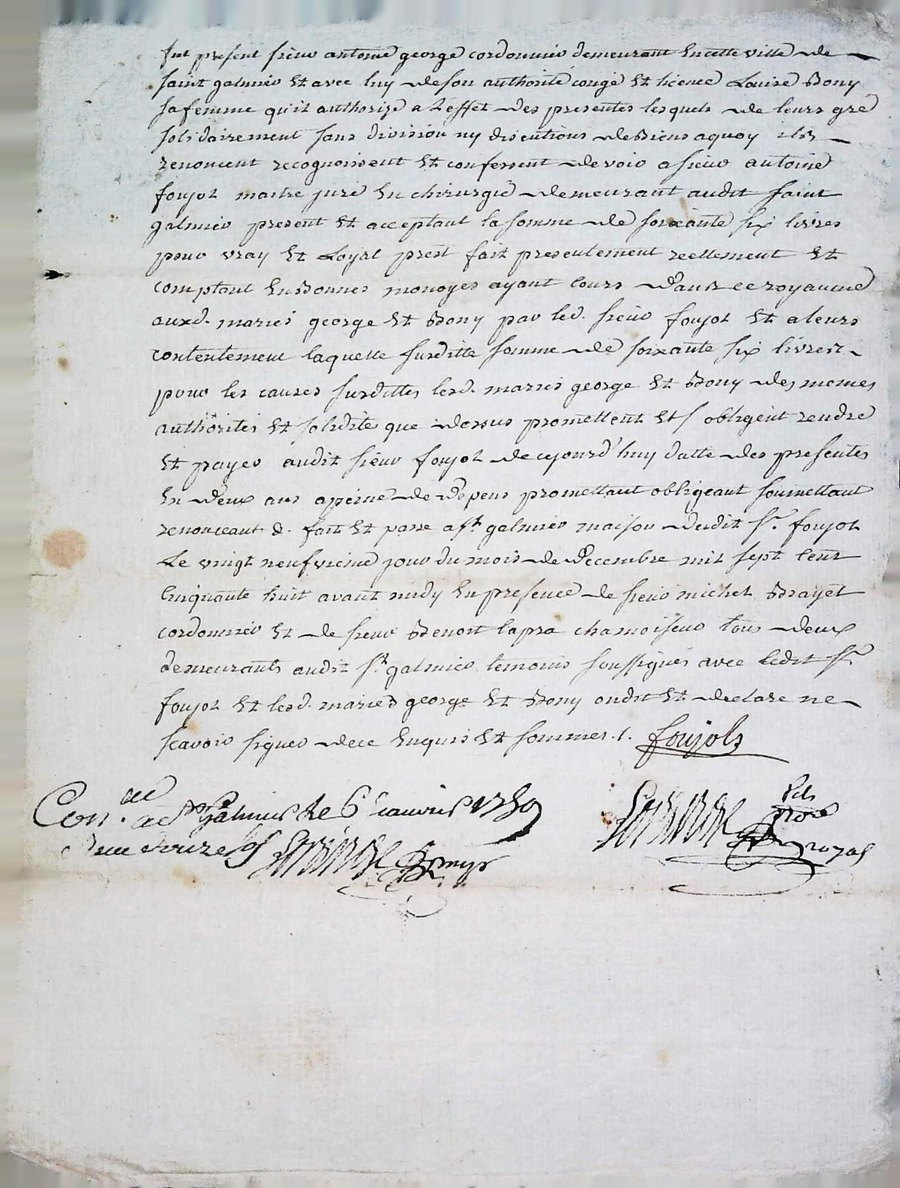 fut present sieur antoine george cordonnier demeurant en cette ville de
saint galmier et avec luy de son authorité congé et licence Louise Bony
sa femme qu'il authorize a l'effet des presentes lesquels de leurs gré
solidairement sans division ny discutions de biens aquoy ils
renoncent recognoissent et confessent devoir a sieur antoine
foujol maitre juré en chirurgie demeurant audit saint
galmier present et acceptant la somme de soixante six livres
pour vray et Loyal prest fait presentement reellement et
comptant en bonnes monoyes ayant cours dans ce royaume
auxd. mariés george et Bony par led. sieur foujol et a leurs
contentement laquelle susditte somme de soixante six livres
pour les causes susdittes lesd. mariés george et Bony des memes
authorités et solidité que dessus promettent et s'obligent rendre
et payer audit sieur foujol de cejourd'huy datte des presentes
en deux ans apeine de depens promettant obligeant soumettant
renonceant &. fait et passé a st. galmier maison dudit sr. foujol
Le vingt neufvieme jour du mois de decembre mil sept cent
Cinquante huit avant midy en presence de sieur michel Brayet
cordonnier et de sieur Benoit lapra chamoiseur tous deux
demeurants audit st. galmier temoins soussignés avec ledit sr
foujol et lesd. mariés george et Bony ondit et declare ne
scavoir signer de ce Enquis et sommes ./. foujols
Con.lé a st Galmier Le 6e janvier 1759
Reçu douze sols